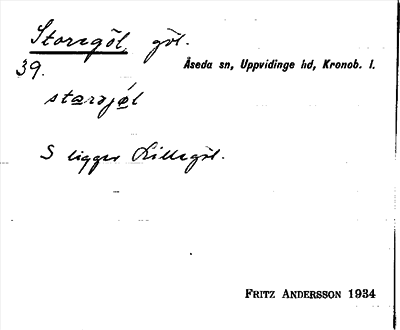 Storegöl, göl.
39. Åseda sn, Uppvidinge hd, Kronob. l.
S ligger Lillegöl.
FRITZ ANDERSSON 1934